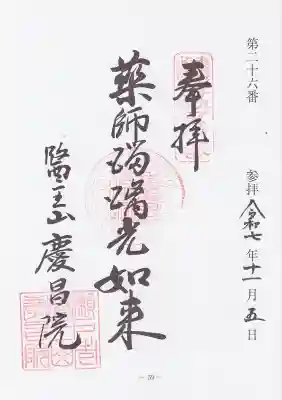 第二十六番　参拝　令和七年十一月五日
奉拝
藥師瑠璃光如来
醫王山 慶昌院